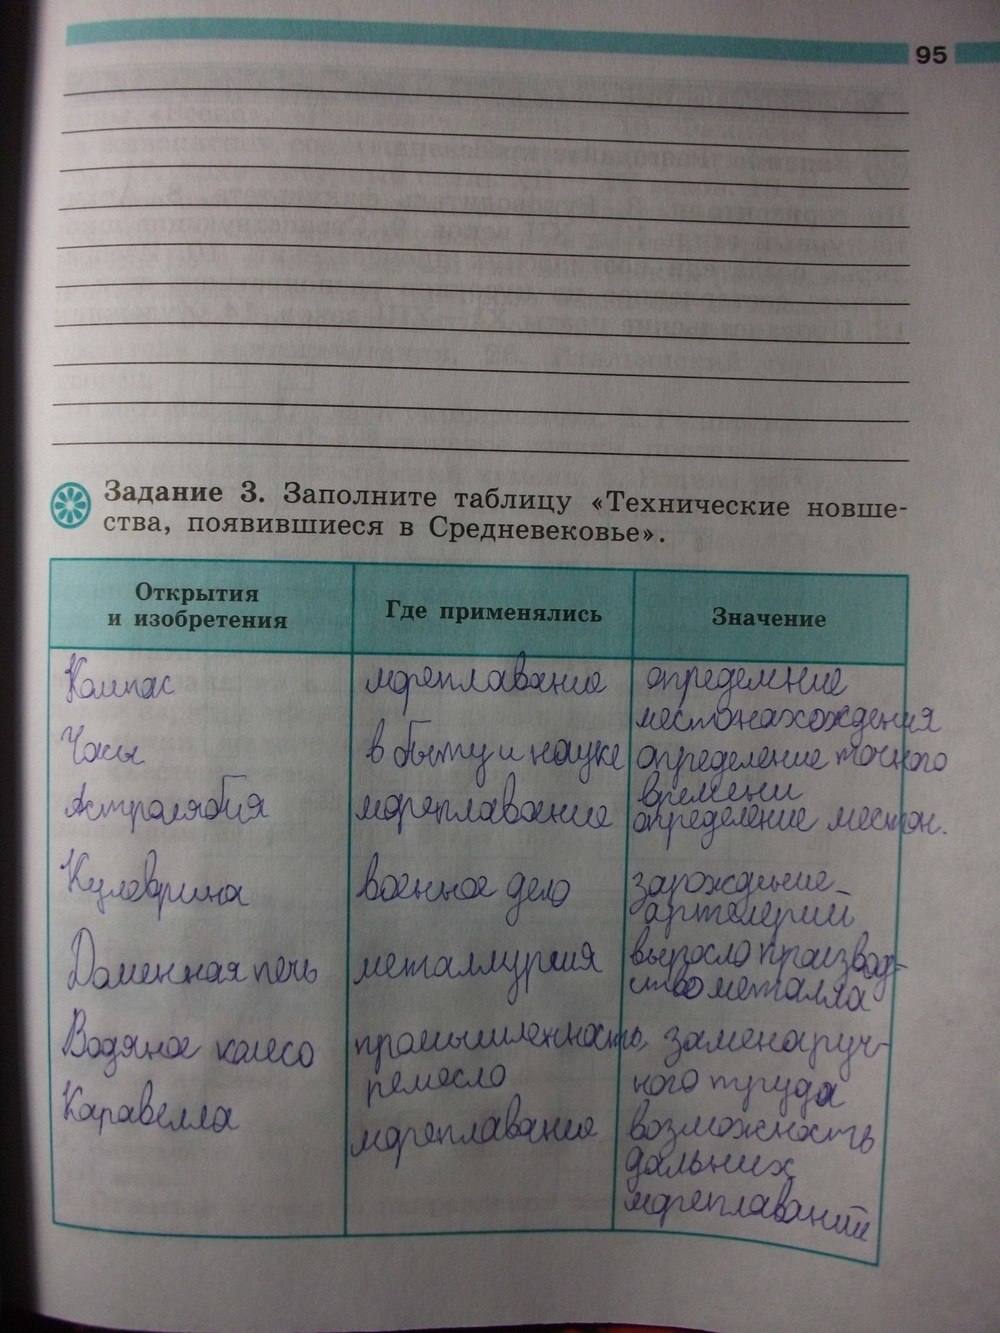 95
Задание 3. Заполните таблицу «Технические новше-
ства, появившиеся в Средневековье».
Открытия
и изобретения
Где применялись
Значение
Компас
мореплавание
определение
местонахождения
Часы
в быту и науке
определение точного
времени
Астролябия
мореплавание
определение местон.
Кулеврина
военное дело
зарождение
артелерии
Доменная печь
металлургия
выросло производ-
ство металла
Водяное колесо
промышленность,
ремесло
замена руч-
ного труда
Каравелла
мореплавание
возможность
дальних
мореплаваний